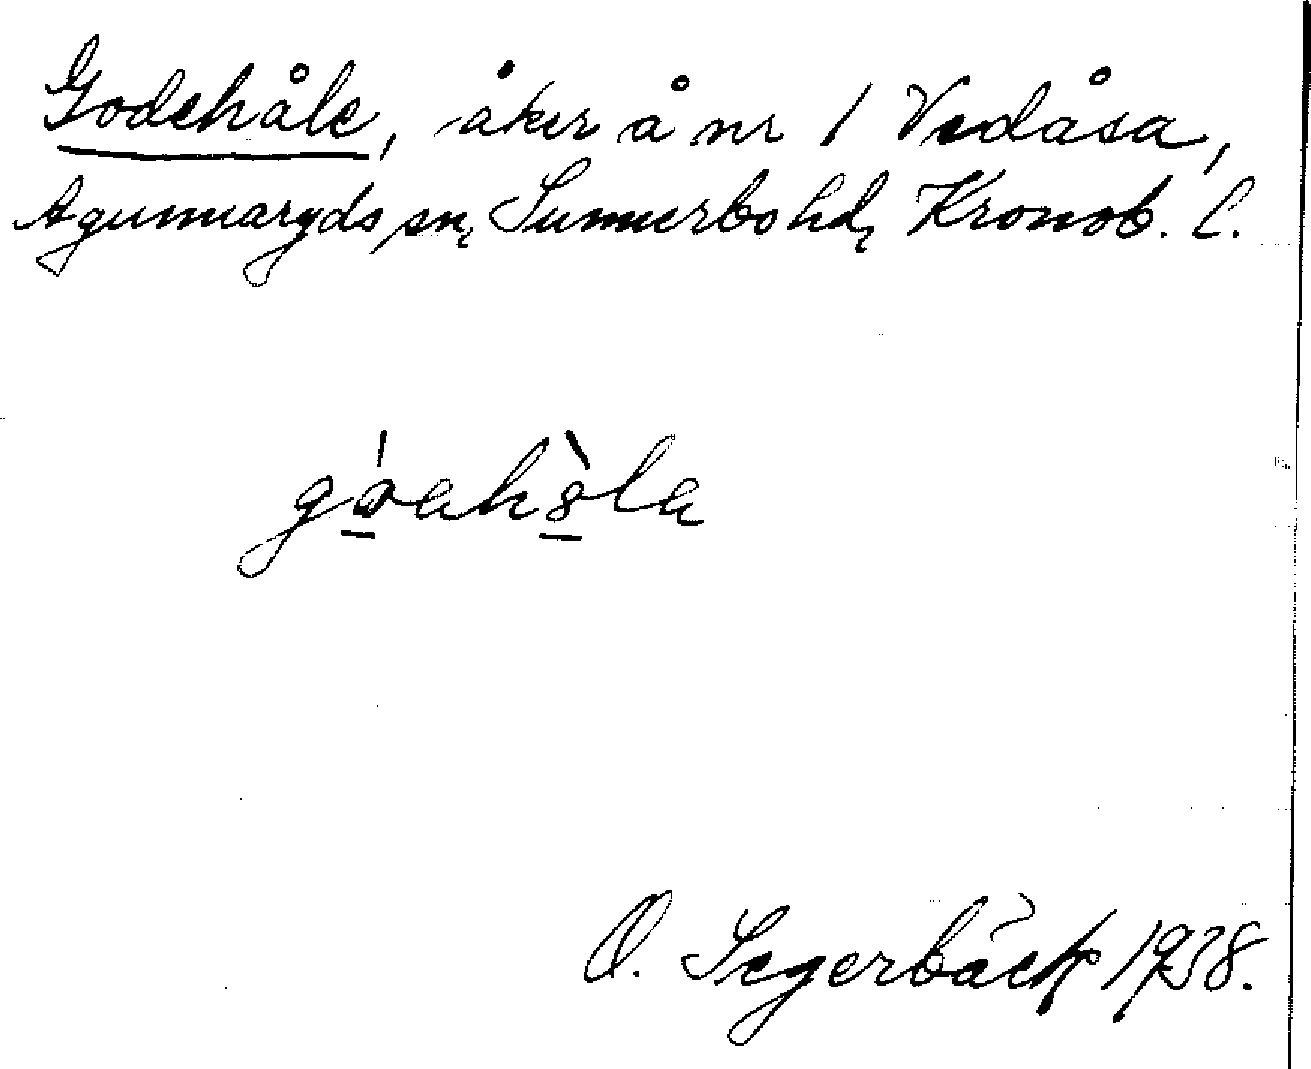 Godehåle, åker å nr 1 Vedåsa,
Agunnaryds sn, Sunnerbo hd, Kronob. l.
O. Segerbäck 1938.